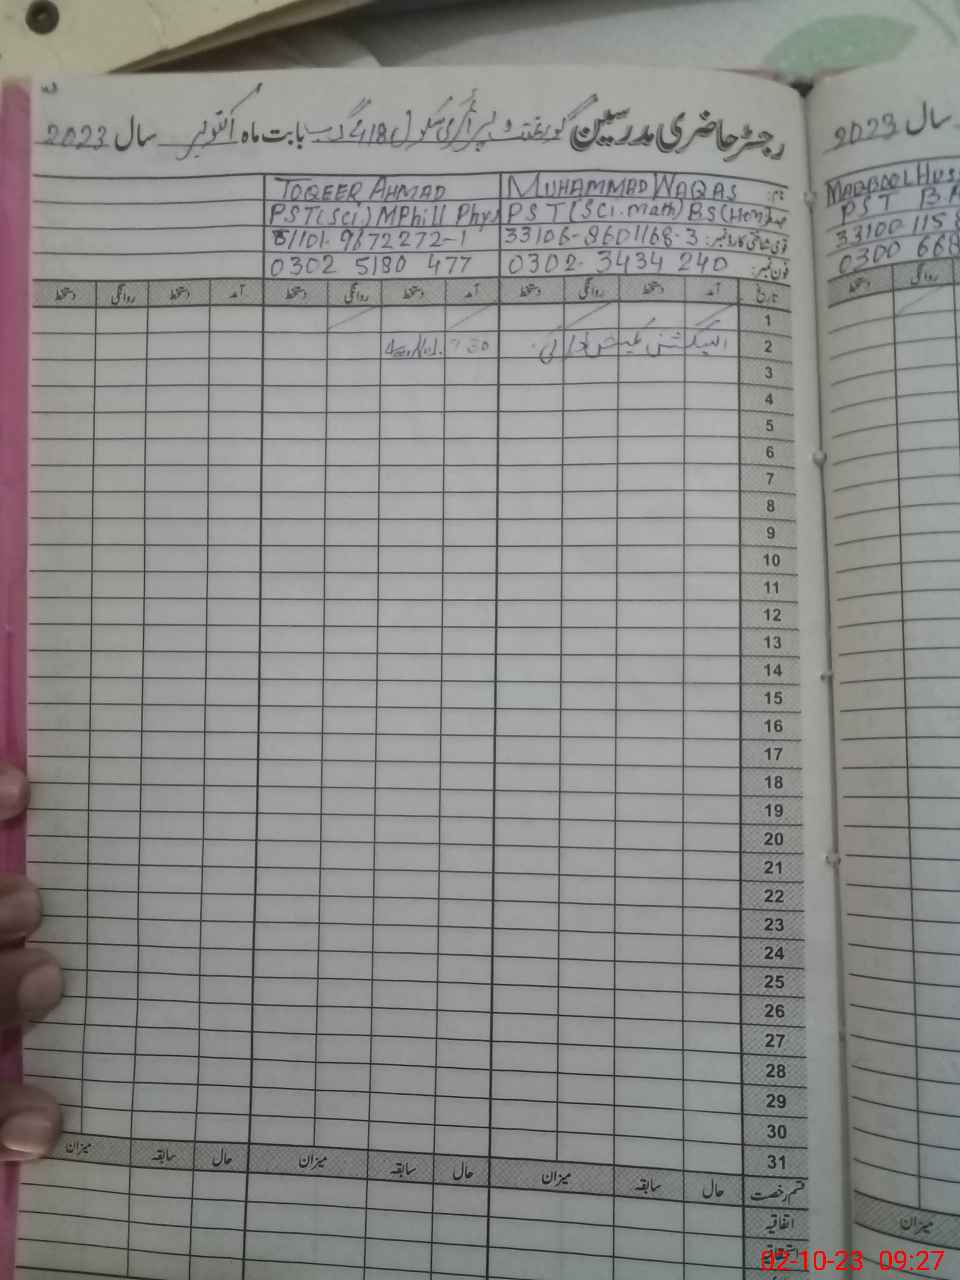 رجسٹر حاضری مدرسین گورنمنٹ پرائمری سکول 418 گ ب بابت ماہ اکتوبر سال 2023
نام: MUHAMMAD WAQAS TOQEER AHMAD
عہدہ PST (Sci.math) BS(Hon) PST(Sci) MPhill Phys
قومی شناختی کارڈ نمبر: 33106-8601168-3 81101-9672272-1
فون نمبر: 0302 3434 240 0302 5180 477
تاریخ آمد دستخط روانگی دستخط آمد دستخط روانگی دستخط آمد دستخط روانگی دستخط
1
2 الیکشن 7 30
3
4
5
6
7
8
9
10
11
12
13
14
15
16
17
18
19
20
21
22
23
24
25
26
27
28
29
30
31
قسم رخصت حال سابقہ میزان حال سابقہ میزان حال سابقہ میزان
اتفاقیہ
استحقاقیہ
سال 2023
MAQBOOL HUS
PST B.A
33100-1158
0300 668
روانگی دستخط
میزان
02-10-23 09:27